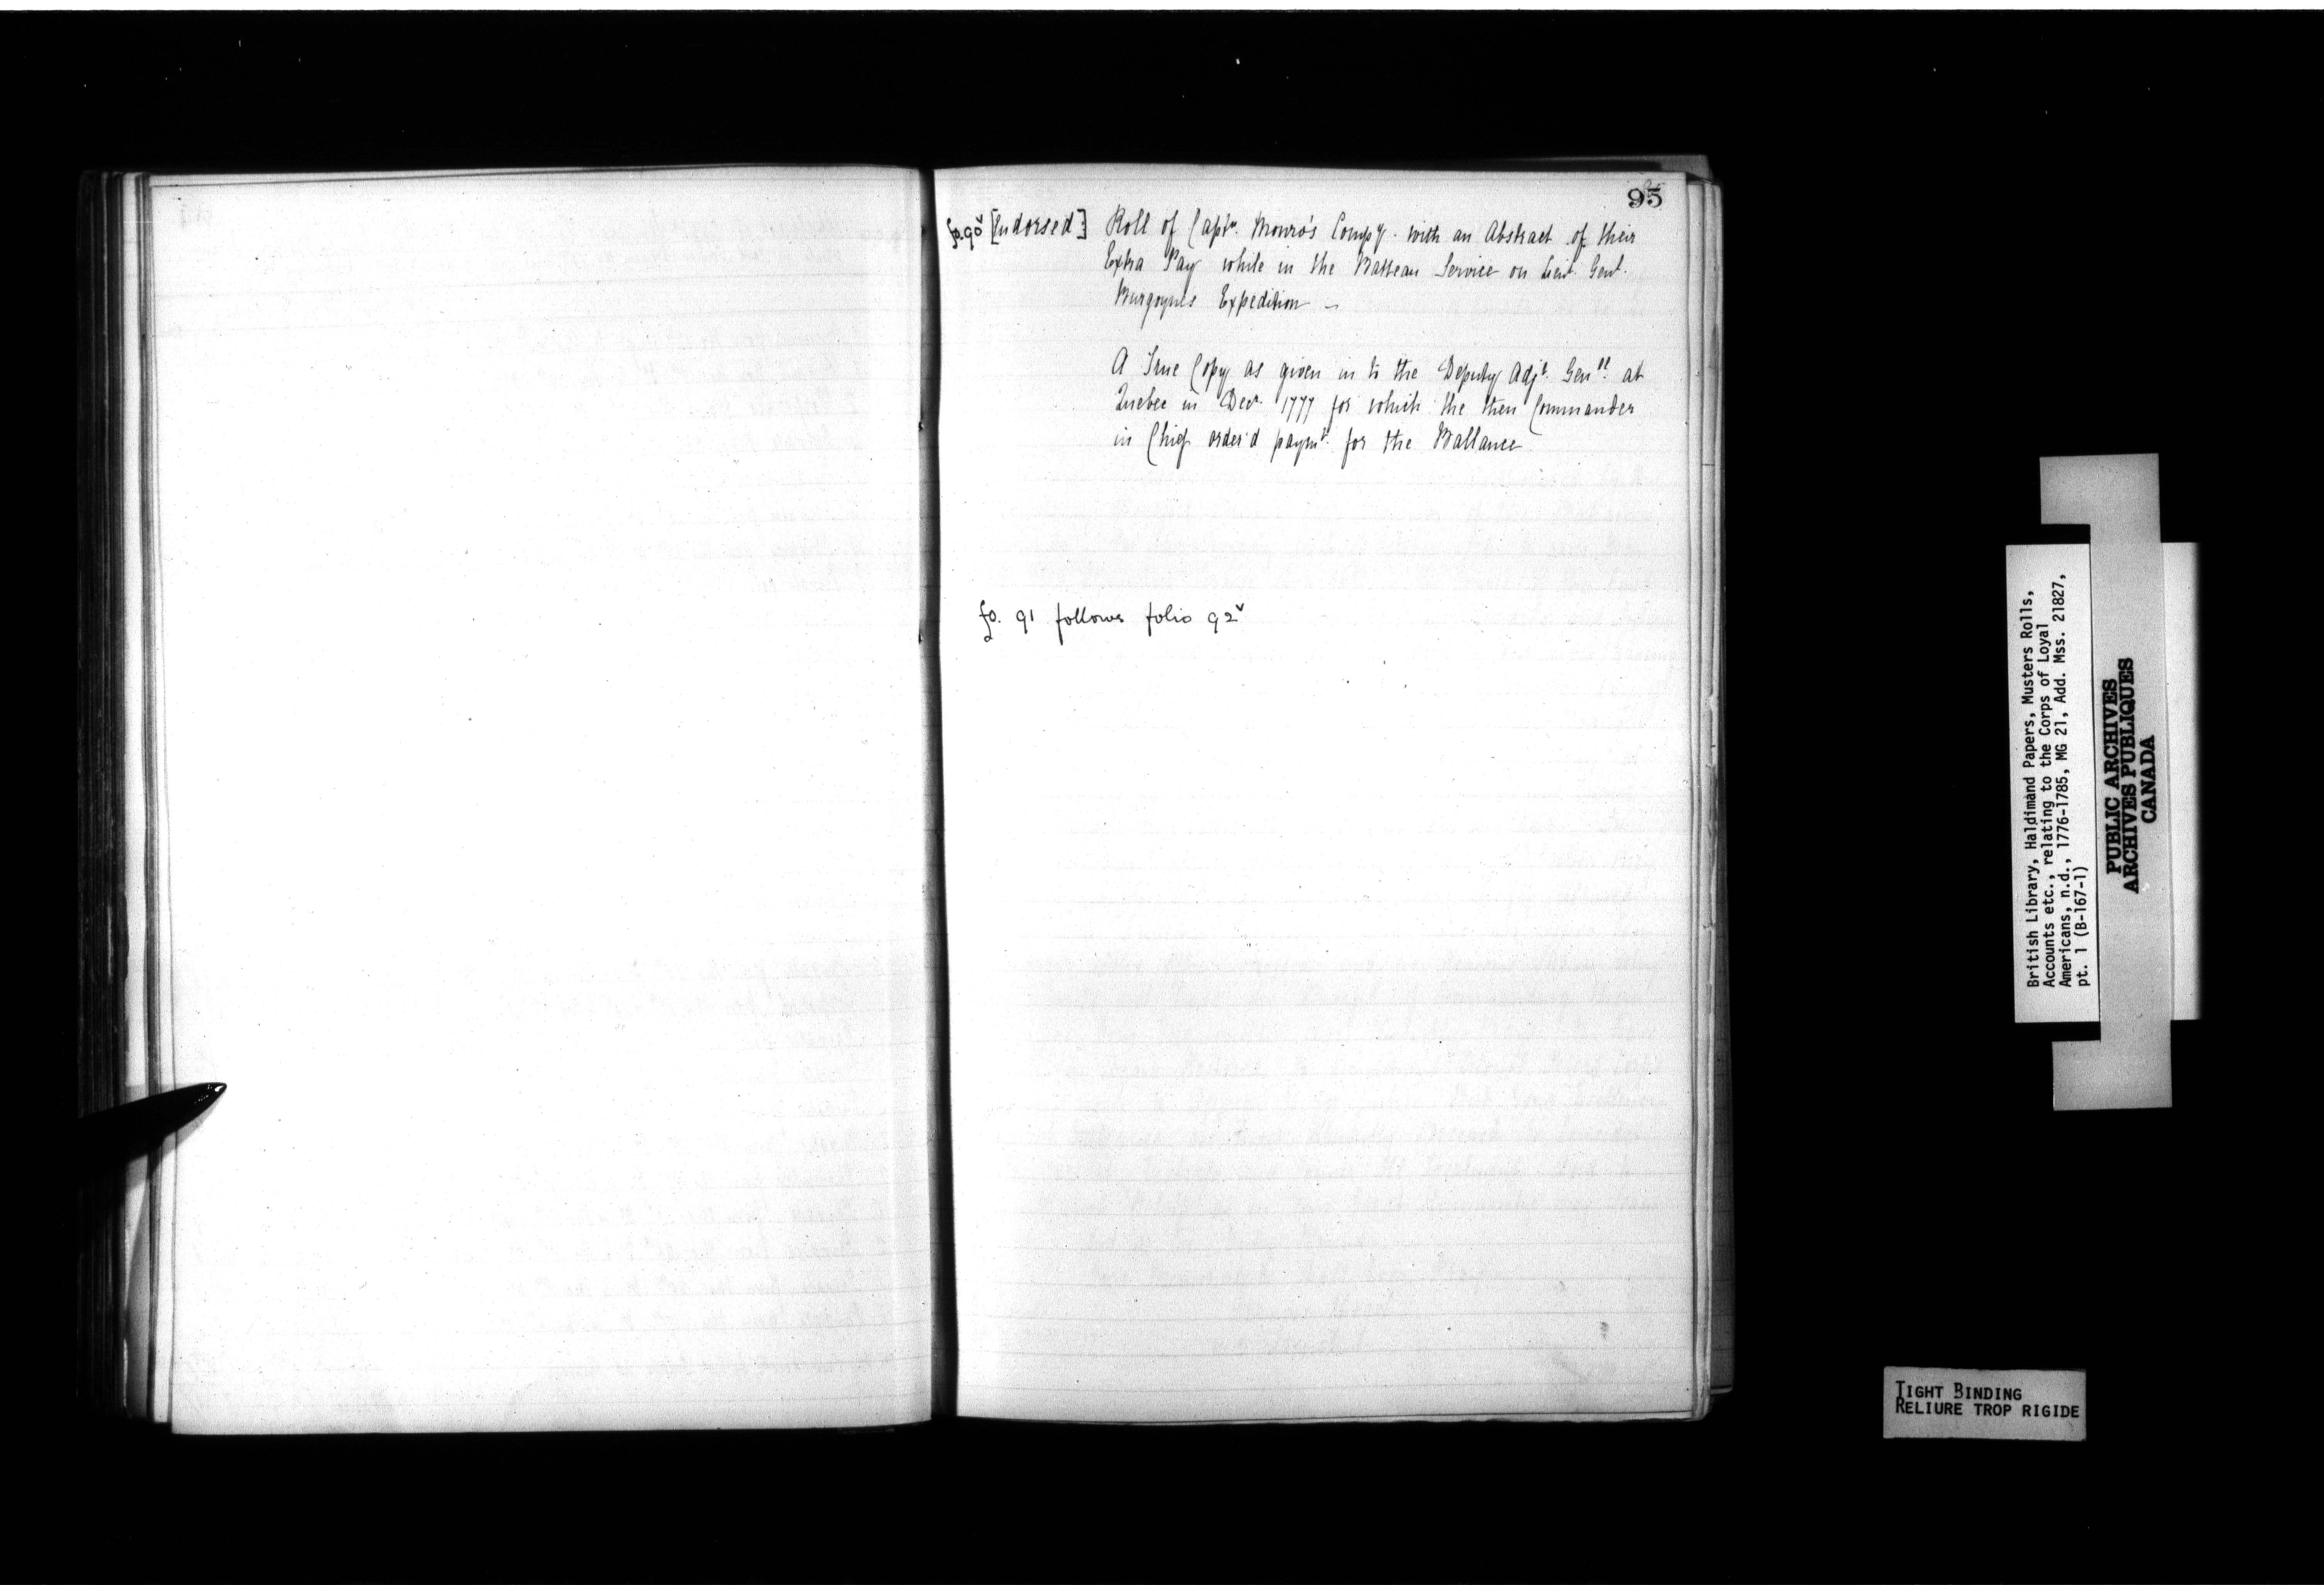 95
fo.90v [Endorsed] Roll of Captn. Monro's Compy. with an Abstract of their
Extra Pay while in the Batteau Service on Lieut. Genl.
Burgoynes Expedition –
A True Copy as given in to the Deputy Adjt. Genll. at
Quebec in Decr. 1777 for which the then Commander
in Chief order'd paymt. for the Ballance
fo. 91 follows folio 92v
British Library, Haldimand Papers, Musters Rolls,
Accounts etc., relating to the Corps of Loyal
Americans, n.d., 1776-1785, MG 21, Add. Mss. 21827,
pt. 1 (B-167-1)
PUBLIC ARCHIVES
ARCHIVES PUBLIQUES
CANADA
TIGHT BINDING
RELIURE TROP RIGIDE